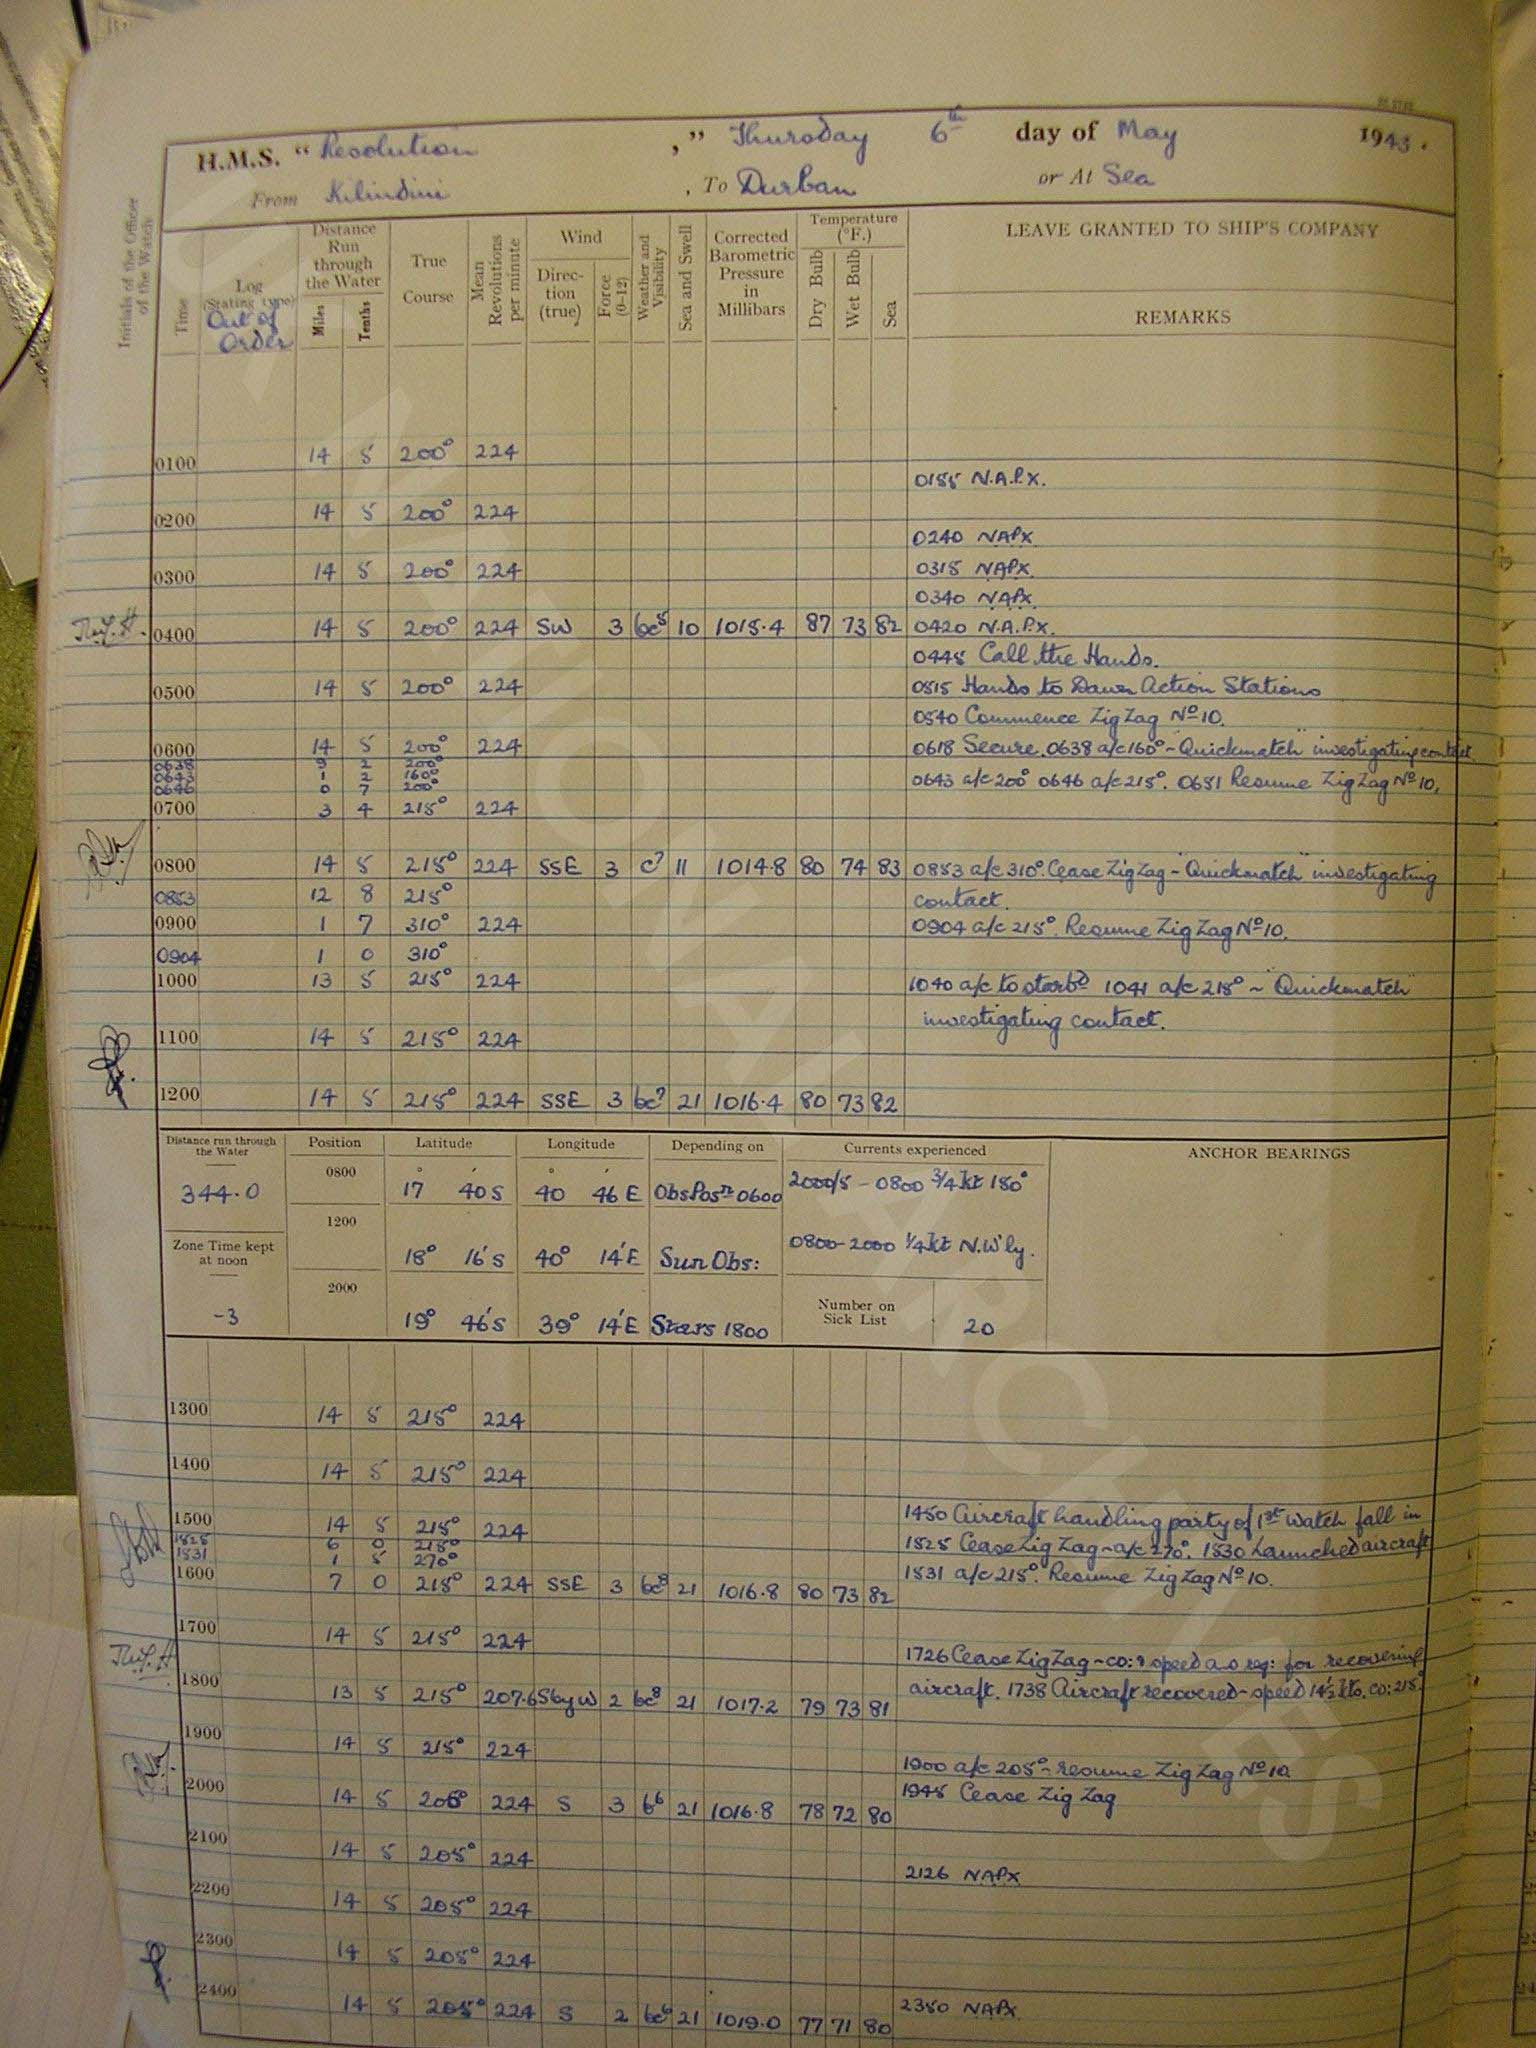 H.M.S. "Resolution ," Thursday 6th day of May 1943.
From Kilindini , To Durban or At Sea
Initials of the Officer of the Watch
Time
Log (Stating type) Out of Order
Distance Run through the Water
Miles Tenths
True Course
Mean Revolutions per minute
Wind
Direction (true) Force (0-12)
Weather and Visibility
Sea and Swell
Corrected Barometric Pressure in Millibars
Temperature (°F.)
Dry Bulb Wet Bulb Sea
LEAVE GRANTED TO SHIP'S COMPANY
REMARKS
0100 14 5 200° 224
0155 N.A.P.X.
0200 14 5 200° 224
0240 NAPX
0300 14 5 200° 224 0315 NAPX.
0340 NAPX.
0400 14 5 200° 224 SW 3 bc8 10 1015.4 87 73 82 0420 N.A.P.X.
0445 Call the Hands.
0500 14 5 200° 224 0515 Hands to Dawn Action Stations
0540 Commence ZigZag No 10.
0600 14 5 200° 224 0618 Secure. 0638 a/c 160° ~ "Quickmatch" investigating contact
0638 9 2 200°
0643 1 2 160° 0643 a/c 200° 0646 a/c 215°. 0651 Resume ZigZag No 10.
0646 0 7 200°
0700 3 4 215° 224
0800 14 5 215° 224 SSE 3 c7 11 1014.8 80 74 83 0853 a/c 310°. Cease ZigZag ~ "Quickmatch" investigating
0853 12 8 215° contact.
0900 1 7 310° 224 0904 a/c 215°. Resume ZigZag No 10.
0904 1 0 310°
1000 13 5 215° 224 1040 a/c to starbd 1041 a/c 215° ~ "Quickmatch"
investigating contact.
1100 14 5 215° 224
1200 14 5 215° 224 SSE 3 bc7 21 1016.4 80 73 82
Distance run through the Water Position Latitude Longitude Depending on Currents experienced ANCHOR BEARINGS
344.0 0800 17 40 S 40 46 E Obs Posn 0600 2000/5 - 0800 3/4 kt 150°
Zone Time kept at noon 1200 18° 16'S 40° 14'E Sun Obs: 0800-2000 1/4 kt N.W'ly.
-3 2000 19° 46'S 39° 14'E Stars 1800 Number on Sick List 20
1300 14 5 215° 224
1400 14 5 215° 224
1450 Aircraft handling party of 1st Watch fall in
1500 14 5 215° 224
1525 6 0 215° 1525 Cease ZigZag ~ a/c 270°. 1530 Launched aircraft
1531 1 5 270°
1600 7 0 215° 224 SSE 3 bc8 21 1016.8 80 73 82 1531 a/c 215°. Resume ZigZag No 10.
1700 14 5 215° 224
1726 Cease ZigZag ~ co: & speed as req: for recovering
1800 13 5 215° 207.6 SbyW 2 bc8 21 1017.2 79 73 81 aircraft. 1738 Aircraft recovered ~ speed 14½ kts. co: 215°
1900 14 5 215° 224
1900 a/c 205° ~ resume ZigZag No 10.
2000 14 5 205° 224 S 3 b6 21 1016.8 78 72 80 1945 Cease ZigZag
2100 14 5 205° 224
2126 NAPX
2200 14 5 205° 224
2300 14 5 205° 224
2400 14 5 205° 224 S 2 bc6 21 1019.0 77 71 80 2350 NAPX